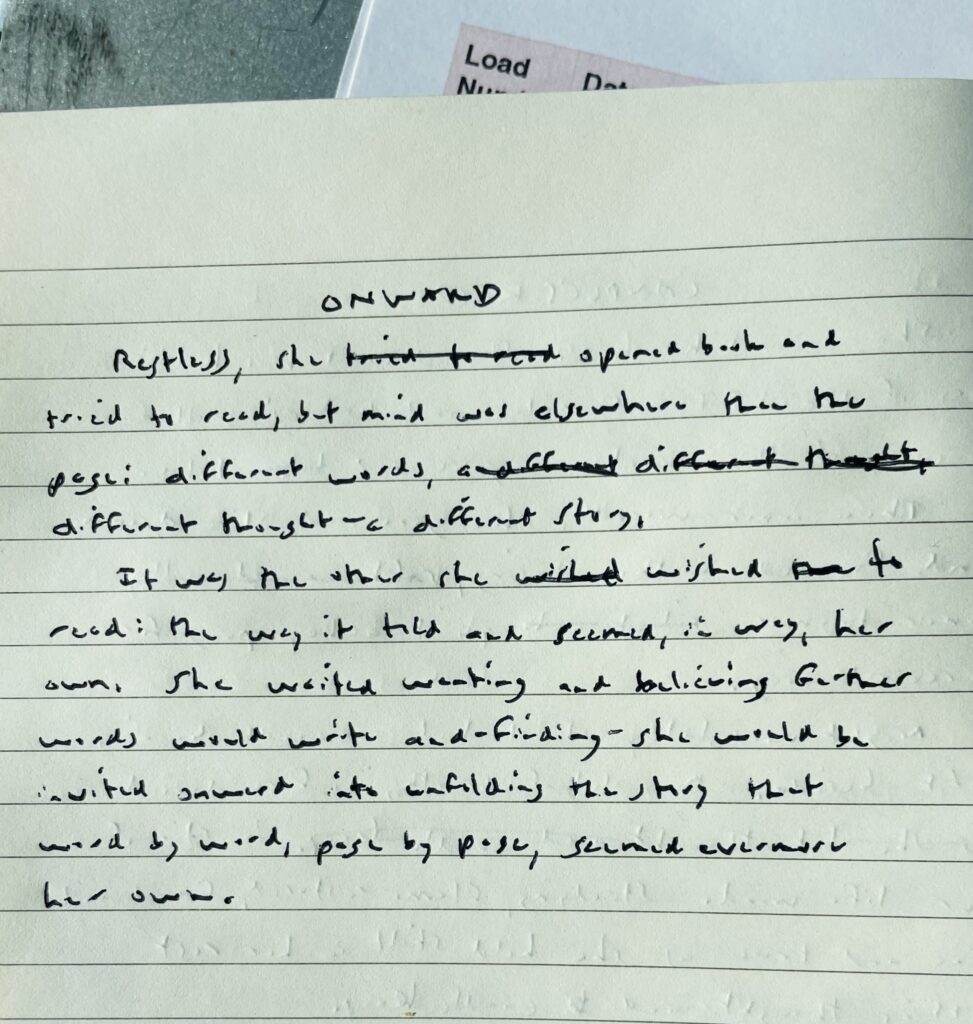 Load
Dat
ONWARD
Restless, she tried to read opened book and
tried to read, but mind was elsewhere than the
page: different words, a different different thought,
different thought—a different story.
It was the other she wished wished the to
read: the way it told and seemed, in way, her
own. She waited wanting and believing further
words would write and—finding—she would be
invited onward into unfolding the story that
word by word, page by page, seemed evermore
her own.